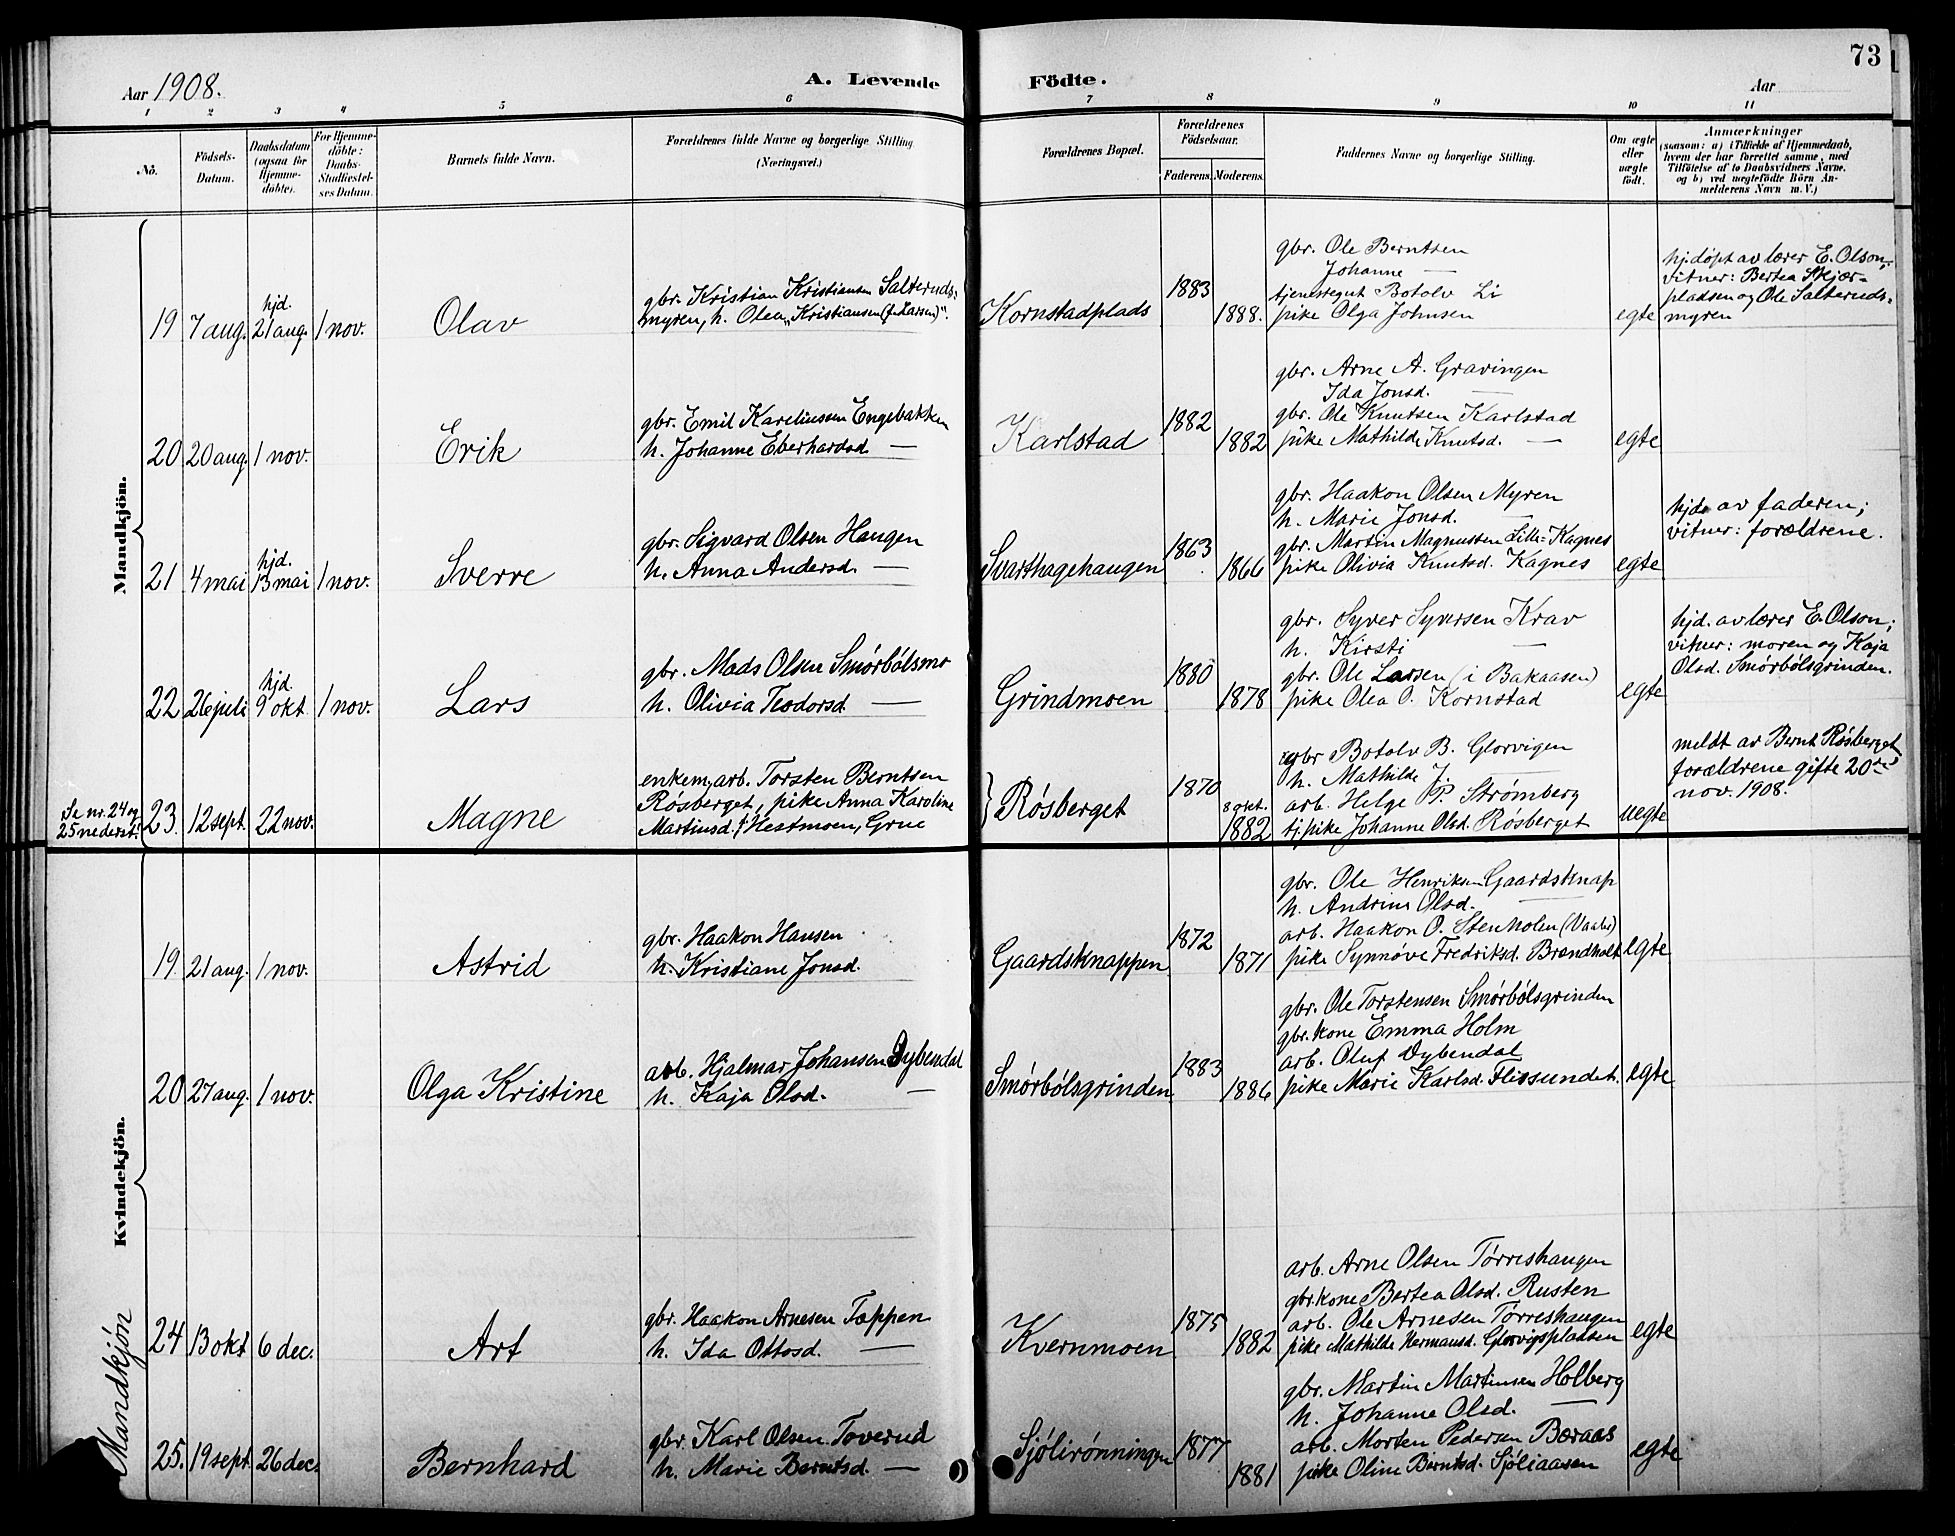 73
Aar 1908.
A. Levende Födte.
Aar
1 2 3 4 5 6 7 8 9 10 11
No.
Födsels-Datum.
Daabsdatum (ogsaa for Hjemme-döbte).
For Hjemme-döbte: Daabs-Stadfæstel-ses Datum.
Barnets fulde Navn.
Forældrenes fulde Navne og borgerlige Stilling (Næringsvei.)
Forældrenes Bopæl.
Forældrenes Födselsaar.
Faderens. Moderens.
Faddernes Navne og borgerlige Stilling.
Om ægte eller uægte födt.
Anmærkninger
(saasom: a) i Tilfælde af Hjemmedaab, hvem der har forrettet samme, med Tilföielse af to Daabsvidners Navne. og b) ved uægtefödte Börn An-melderens Navn m. V.)
Mandkjön.
19 7 aug. hjd. 21 aug. 1 nov. Olav
gbr. Kristian Kristiansen Salteruds-
myren, h. Olea „Kristiansen (f. Larsen)".
Kornstadplads 1883 1888.
gbr. Ole Berntsen
Johanne —
tjenestegut Botolv Li
pike Olga Johnsen
egte
hjdøpt av lærer E. Olson;
vitner: Bertea Skjær-
pladsen og Ole Salteruds-
myren
20 20 aug. 1 nov. Erik
gbr. Emil Kareliussen Engebakken
h. Johanne Eberhardsd. —
Karlstad 1882 1882
gbr. Arne A. Gravingen
Ida Jonsd. —
gbr. Ole Knutsen Karlstad
pike Mathilde Knutsd. —
egte
21 4 mai hjd. 13 mai 1 nov. Sverre
gbr. Sigvard Olsen Haugen
h. Anna Andersd. —
Svarthagehaugen 1863 1866
gbr. Haakon Olsen Myren
h. Marie Jonsd. —
gbr. Martin Magnussen Lille-Kagnes
pike Olivia Knutsd. Kagnes
egte
hjd. av faderen;
vitner: forældrene.
22 26 juli hjd. 9 okt. 1 nov. Lars
gbr. Mads Olsen Smørbölsmo
h. Olivia Teodorsd. —
Grindmoen 1880 1878
gbr. Syver Syversen Krav
h. Kirsti —
gbr. Ole Larsen (i Bakaasen)
pike Olea O. Kornstad
egte
hjd. av lærer E. Olson;
vitner: moren og Kaja
Olsd. Smörbölsgrinden.
Se nr. 24 og
25 nederst!
23. 12 sept. 22 nov. Magne
enkem, arb. Torsten Berntsen
Røsberget, pike Anna Karoline
Martinsd. f. Hestmoen, Grue
Røsberget 1870 8 okt. 1882
gbr Botolv B. Glorvigen
h. Mathilde J. —
arb. Helge P. Strømberg
tj. pike Johanne Olsd. Røsberget
uegte
meldt av Bernt Røsberget
forældrene gifte 20de
nov. 1908.
Kvindekjön.
19. 21 aug. 1 nov. Astrid
gbr. Haakon Hansen
h. Kristiane Jonsd.
Gaardsknappen 1872 1871
gbr. Ole Henriksen Gaardsknap
h. Andrine Olsd. —
arb. Haakon O. Stenholen (Vaaler)
pike Synnøve Fredriksd. Brændholt
egte
20 27 aug. 1 nov. Olga Kristine
arb. Hjalmar Johansen Dybendal
h. Kaja Olsd. —
Smörbölsgrinden 1883 1886
gbr. Ole Torstensen Smörbölsgrinden
gbr. kone Emma Holm
arb. Oluf Dybendal
pike Marie Karlsd. Flissundet.
egte
Mandkjön
24 13 okt 6 dec. Art
gbr. Haakon Arnesen Tæppen
h. Ida Ottosd. —
Kvernmoen 1875 1882
arb. Arne Olsen Tørreshaugen
gbr. kone Bertea Olsd. Rusten
arb. Ole Arnesen Tørreshaugen
pike Mathilde Hermansd. Glorvigspladsen
egte
25. 19 sept. 26 dec. Bernhard
gbr. Karl Olsen Toverud
h. Marie Berntsd. —
Sjölirönningen 1877 1881
gbr. Martin Martinsen Holberg
h. Johanne Olsd. —
arb. Morten Pedersen Bæraas
pike Oline Berntsd. Sjöliaasen
egte